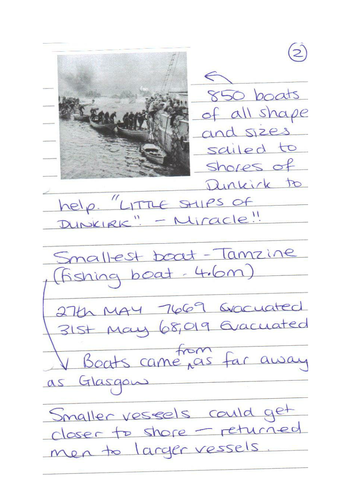 2
850 boats
of all shape
and sizes
sailed to
shores of
Dunkirk to
help. "LITTLE SHIPS OF
DUNKIRK" - Miracle!!
Smallest boat - Tamzine
(fishing boat - 4.6m)
27th MAY 7669 Evacuated
31st May 68,019 Evacuated
Boats came from as far away
as Glasgow
Smaller vessels could get
closer to shore - returned
men to larger vessels.